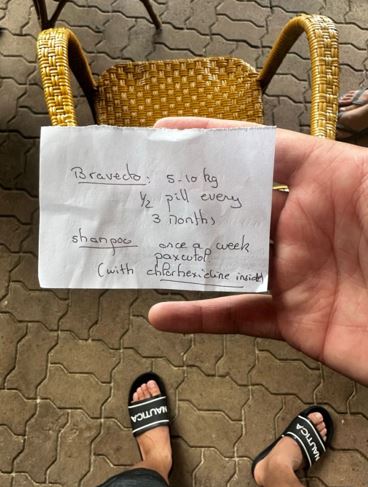 Bravecto: 5-10 kg
1/2 pill every
3 months
shampoo once a week
paxcutol
(with chlorhexidine inside)
NAUTICA
NAUTICA